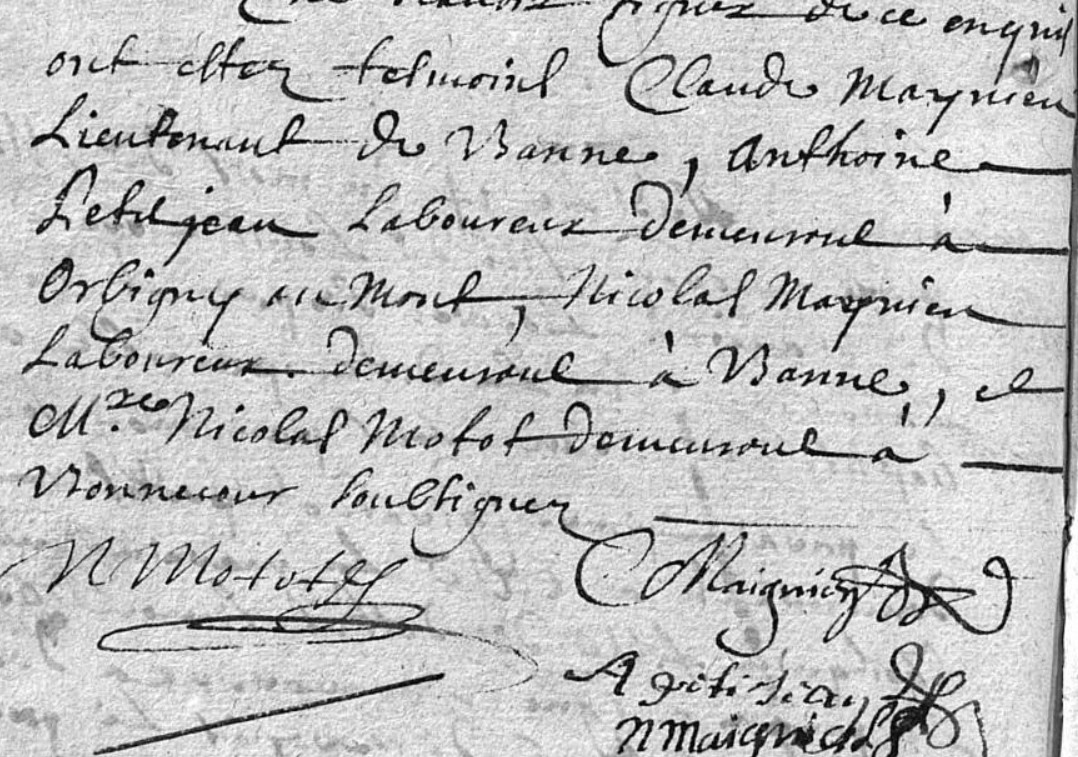 de ce enquil
ont estez tesmoins Claude Magnien
Lieutenant de Banne, Anthoine
Petitjean Laboureur demeurant à
Orbigny au Mont, Nicolas Magnien
Laboureur demeurant à Banne, et
M.re Nicolas Motot demeurant à
Bonnecour soubsignez
N Motot
C Maignien
A petitjean
N maignien